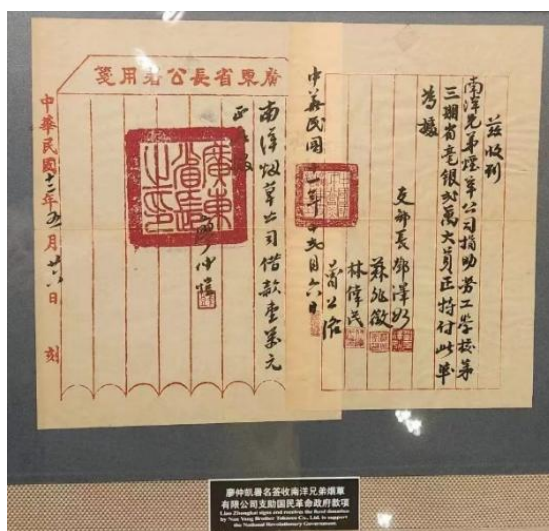 茲收到
南洋兄弟煙草公司捐助勞工學校第
三期省毫銀弍萬大員正特付此單
為據
支部長鄧澤如
蘇兆徵
林偉民
中華民國十一年
月六日
廣東省長公署用箋
南洋烟草公司借款壹萬元
正
廖仲愷
廣東省長之印
中華民國十三年五月廿六日 刻
廖仲凱署名簽收南洋兄弟煙草
有限公司支助國民革命政府款項
Liao Zhongkai signs and receives the fund donation
by Nan Yang Brother Tobacco Co., Ltd. to support
the National Revolutionary Government